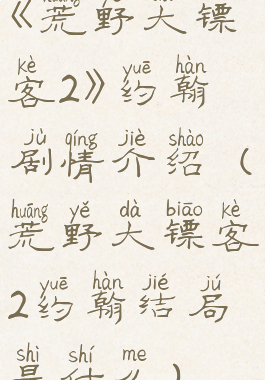 《荒野大镖
kè yuē hàn
客2》约翰
jù qíng jiè shào
剧情介绍（
huāng yě dà biāo kè
荒野大镖客
yuē hàn jié jú
2约翰结局
shì shí me
是什么）